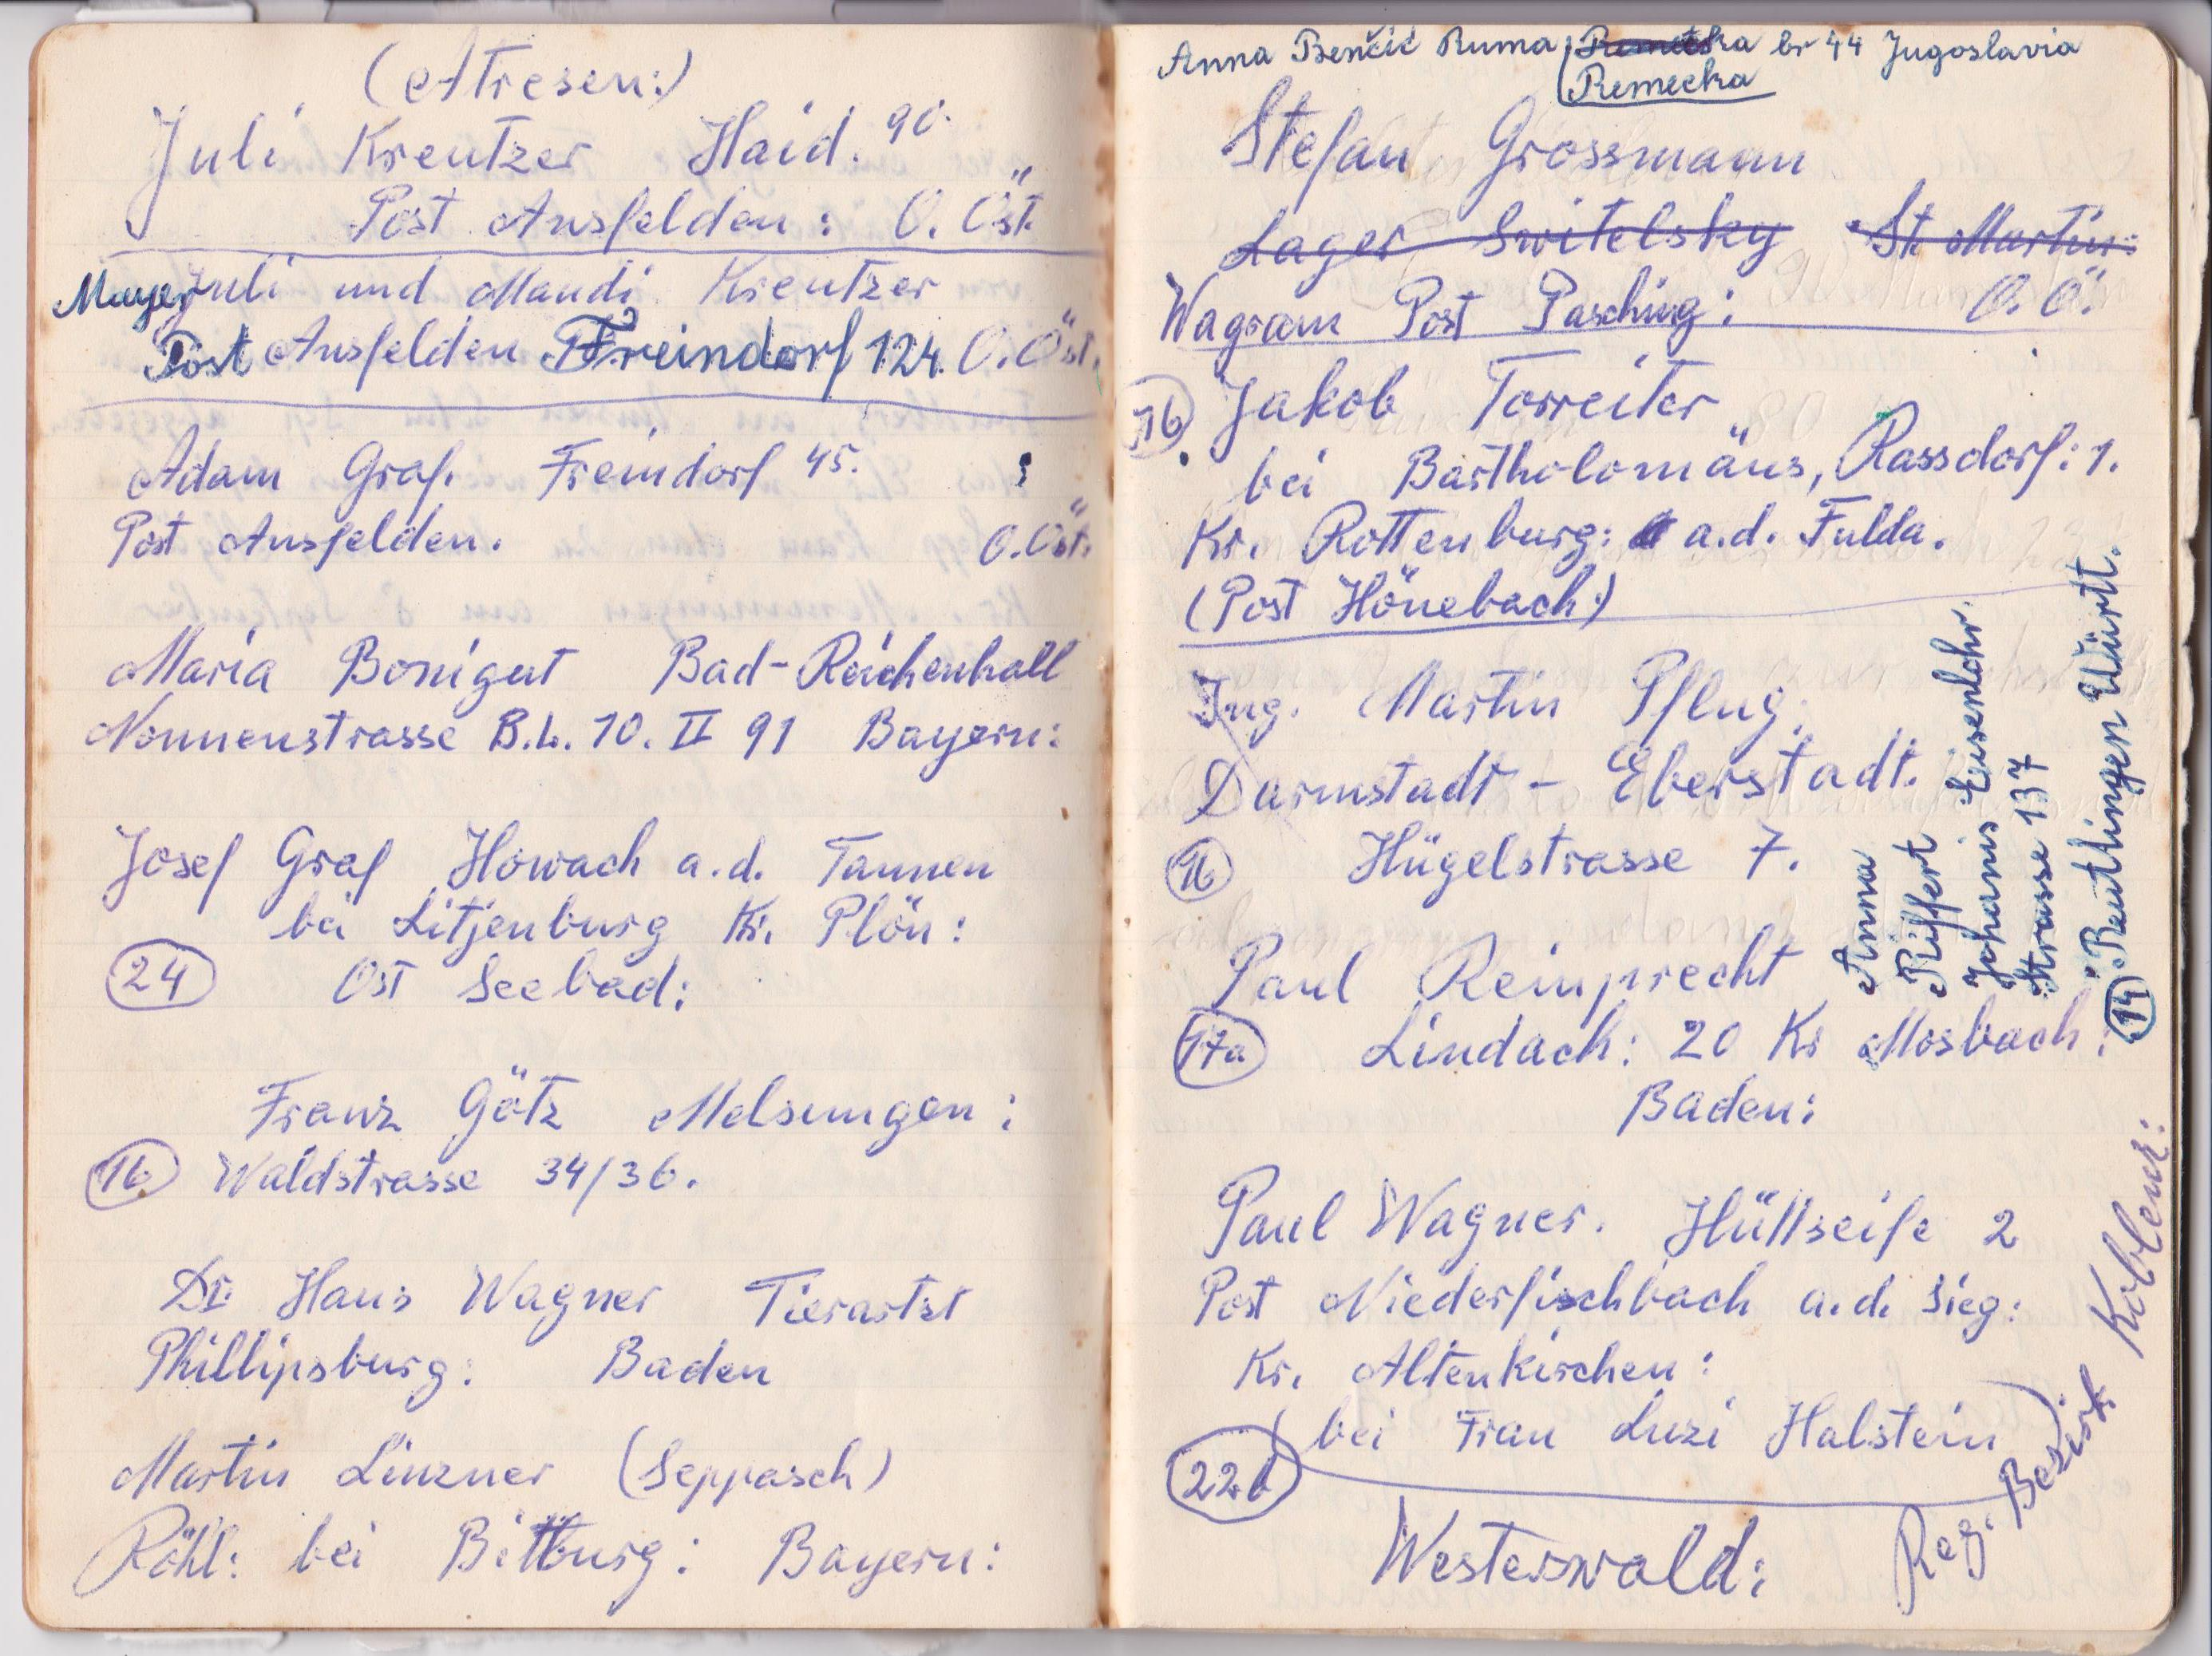 (Atresen:)
Juli Kreutzer Haid. 90.
Post Ansfelden: O. Öst.
Mayer Juli und Mandi Kreutzer
Post Ansfelden Freindorf 124. O. Öst.
Adam Graf. Freindorf 45. :
Post Ansfelden. O. Öst.
Maria Bonigut Bad-Reichenhall
Nonnenstrasse B.L. 10. II 91 Bayern:
Josef Graf Howach a.d. Tannen
bei Litjenburg Kr. Plön:
24 Ost Seebad:
Franz Götz Melsungen:
16 Waldstrasse 34/36.
Dr. Hans Wagner Tierartzt
Phillipsburg: Baden
Martin Linzner (Seppasch)
Röhl: bei Bittburg: Bayern:
Anna Benčić Ruma Remetska br 44 Jugoslavia
Remecka
Stefan Grossmann
Lager Switelsky St. Martin:
Wagram Post Pasching: O. Ö.
16 Jakob Torreiter
bei Bartholomäus, Rassdorf: 1.
Kr. Rottenburg: a.d. Fulda.
(Post Hönebach:)
Ing. Martin Pflug.
Darmstadt - Eberstadt.
16 Hügelstrasse 7.
Anna
Riffert
Johanis Eisenlohr.
Strasse 137
14 Reutlingen Würt.
Paul Reinprecht
17a Lindach: 20 Kr Mosbach:
Baden:
Paul Wagner. Hüllseife 2
Post Niederfischbach a.d. Sieg:
Kr. Altenkirchen:
(bei Frau Luzi Halstein)
22b
Westerwald:
Reg. Bezirk Koblenz: